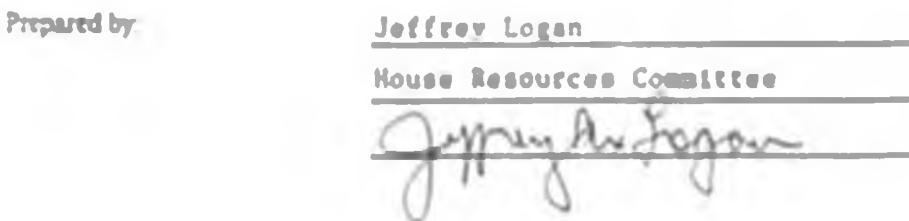 Prepared by: Jeffrey Logan
House Resources Committee
Jeffrey A. Logan